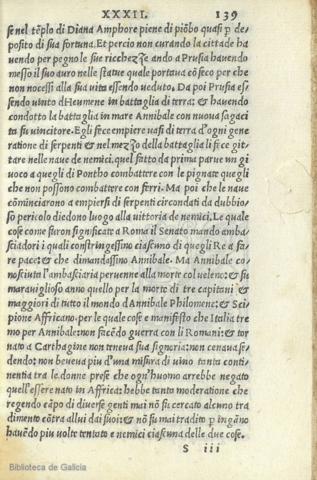 XXXII. 139
se nel tẽplo di Diana Amphore piene di piõbo quasi p de
posito di sua fortuna. Et percio non curando la cittade ha
uendo per pegnole sue ricchezze ando a Prusia hauendo
messo il suo auro nelle statue quale portaua cõ seco per che
non nocessi alla sua vita essendo veduto. Da poi Prusia es
sendo vinto d'Heumene in battaglia di terra: & hauendo
condotto la battaglia in mare Annibale con nuoua sagaci
ta fu vincitore. Egli fece empiere vasi di terra d'ogni gene
ratione di serpenti & nel mezzo della battaglia li fece git-
tare nelle naue de nemici. quel fatto da prima parue un gi
uoco a quegli di Pontho combattere con le pignate quegli
che non possono combattere con ferri. Ma poi che le naue
cõminciarono a empiersi di serpenti circondati da dubbio
so pericolo diedono luogo alla uittoria de nemici. Le quale
cose come furon significate a Roma il Senato mando amba
sciadori i quali constringessino ciascuno di quegli Re a fa-
re pace: & che dimandassino Annibale. Ma Annibale co
nosciuta l'ambasciaria peruenne alla morte col ueleno: & fu
marauiglioso anno quello per la morte di tre capitani &
maggiori di tutto il mondo d'Annibale Philomene: & Sci
pione Affricano. per le quale cose e manifesto che Italia tre
mo per Annibale: non facẽdo guerra con li Romani: & tor
nato a Carthagine non teneua sua signoria: non cenaua se
dendo: non beueua piu d'una misura di uino tanta conti-
nentia tra le donne prese che ogn'huomo arrebbe negato
quell'essere nato in Affrica: hebbe tanta moderatione che
regendo cãpo di diuerse genti mai nõ fu cercato alcuno tra
dimento cõtra allui dai suoi: & nõ fu mai tradito p ingãno
hauẽdo piu volte tentato e nemici ciascuna delle due cose.
S iii
Biblioteca de Galicia